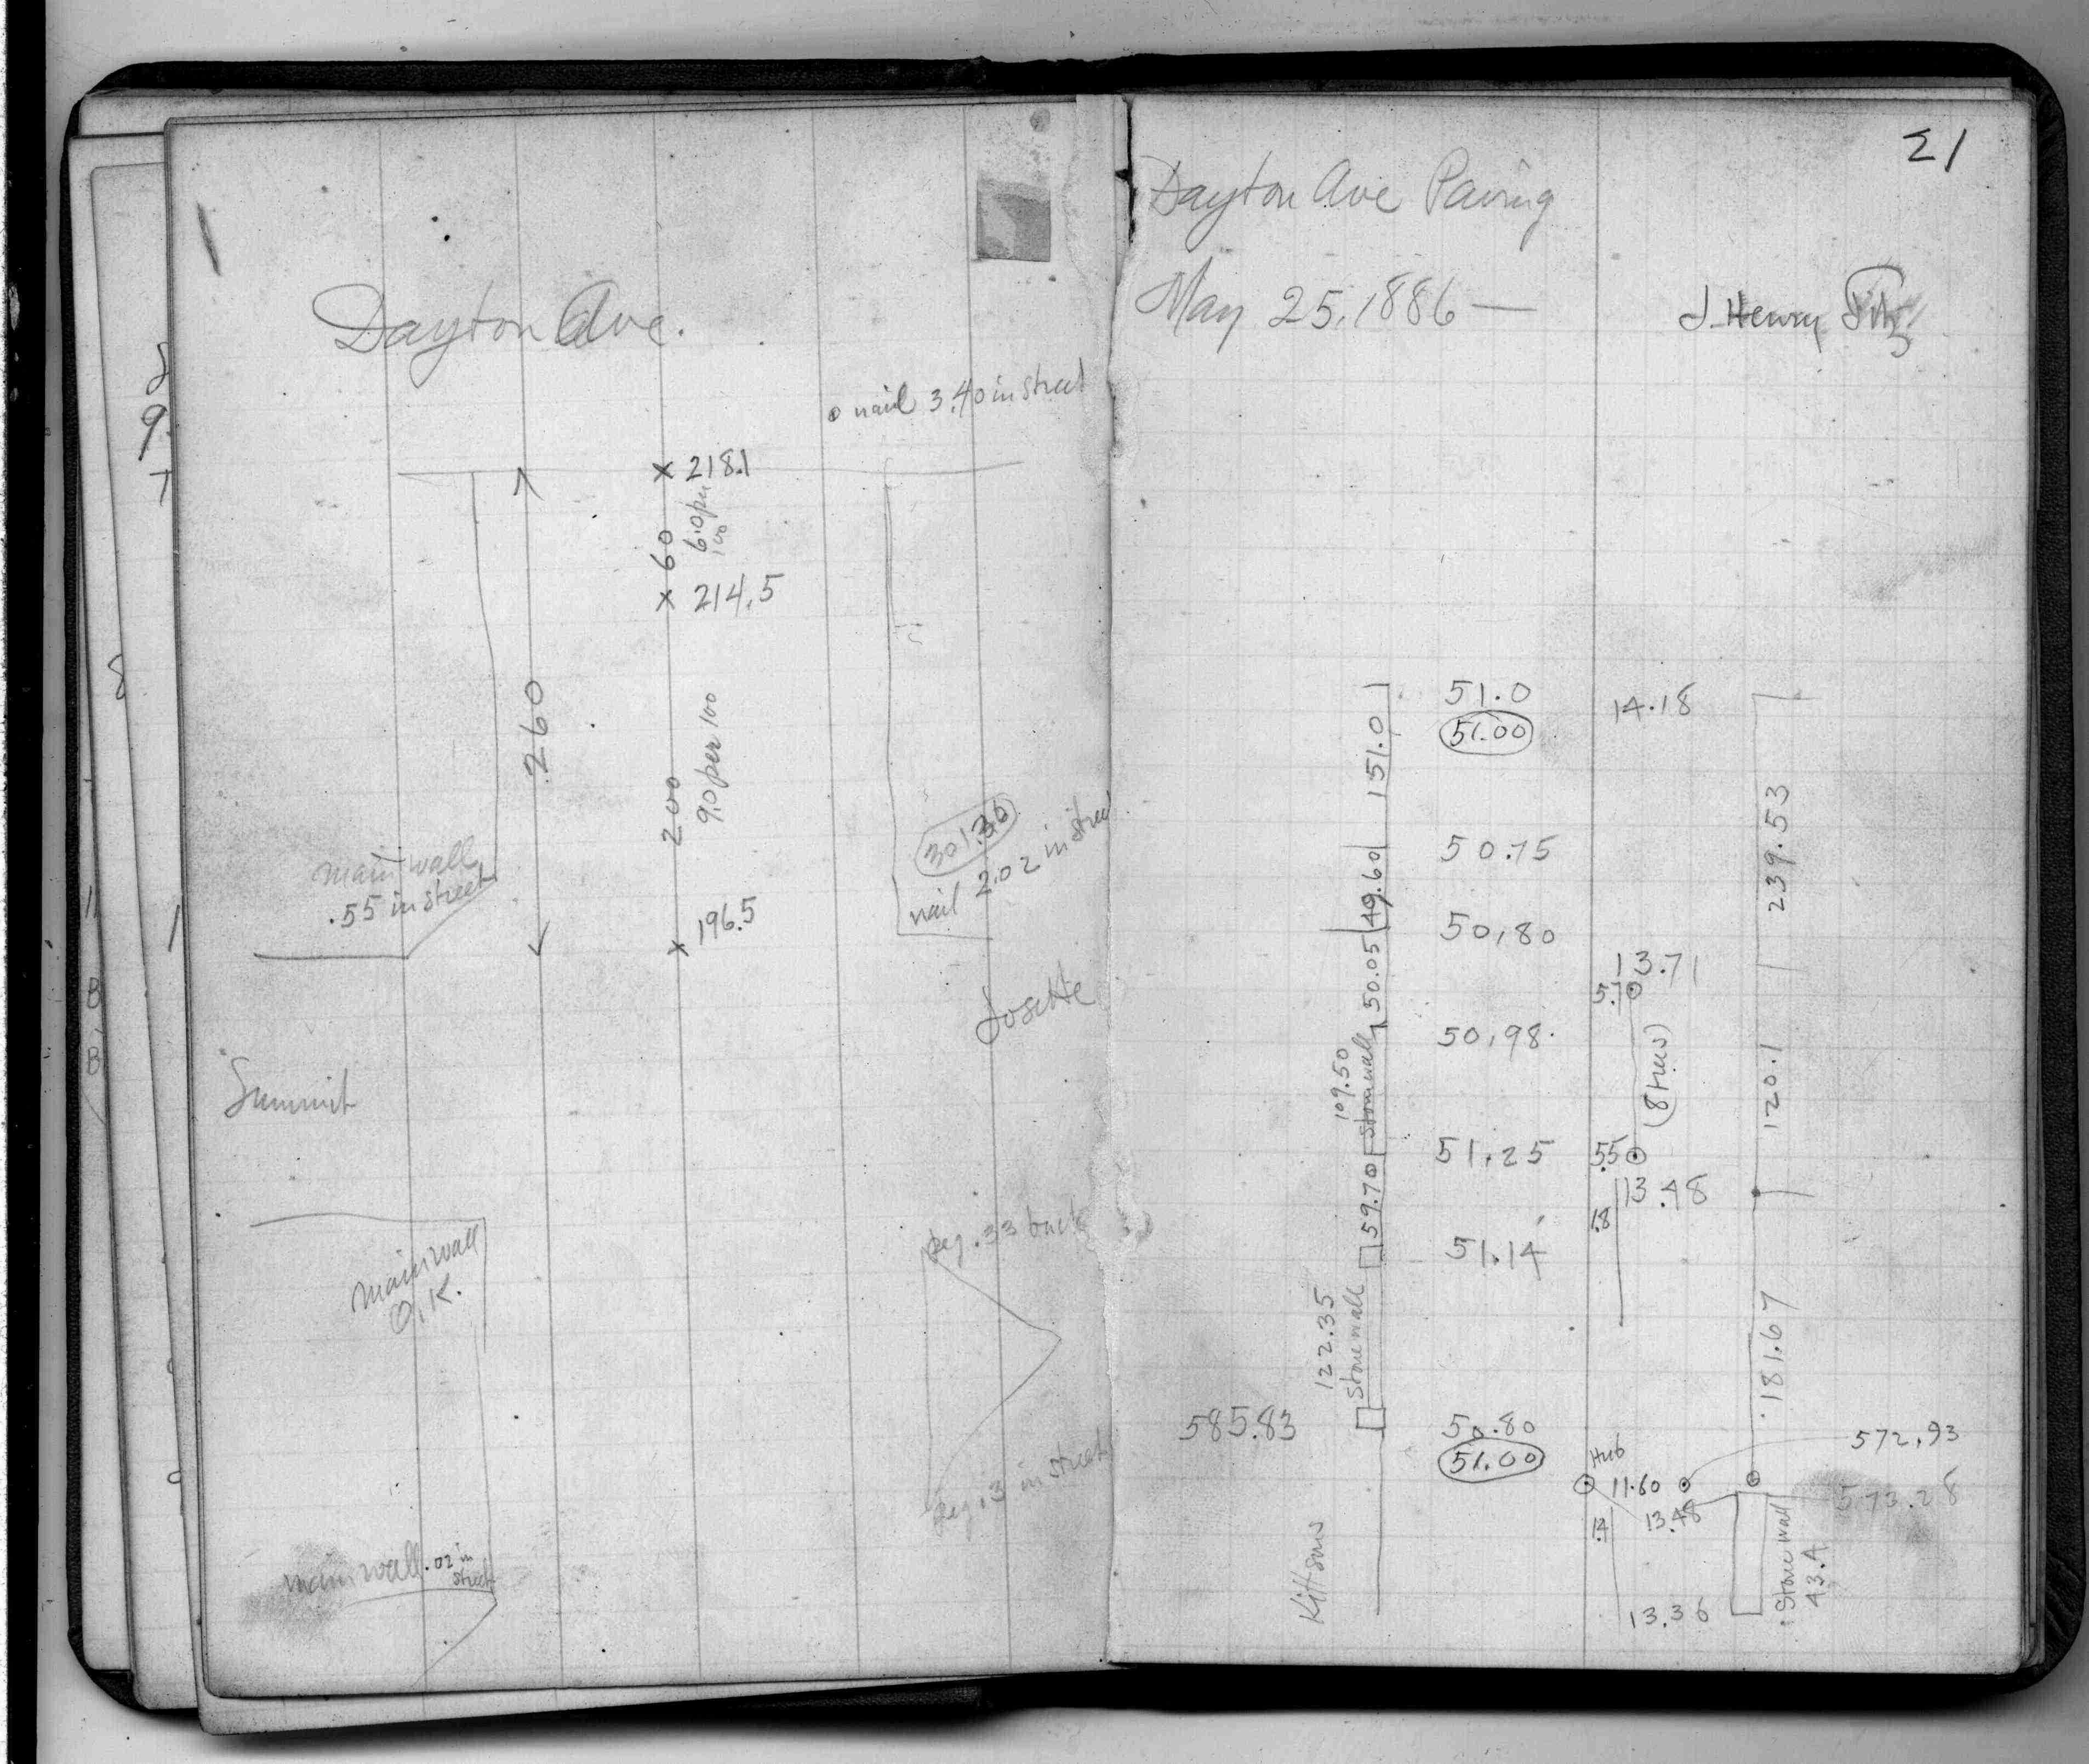 Dayton Ave.
nail 3.40 in street
218.1
6.0 per 100
60
214.5
260
200
9.0 per 100
main wall
.55 in street
301.36
nail 2.02 in street
196.5
Summit
main wall
O.K.
peg .33 back
peg .3 in street
main wall .02 in street
21
Dayton Ave Paving
May 25, 1886 —
J. Henry
51.0
51.00
14.18
151.0
239.53
50.75
49.60
50.80
13.71
5.7
50.05
50.98
(8 trees)
120.1
109.50
Stone wall
51.25
.55
13.48
59.70
1.8
51.14
122.35
Stone wall
181.67
585.83
50.80
51.00
Hub
11.60
572.93
573.28
13.48
1.4
Stone wall
43.4
Kittsons
13.36